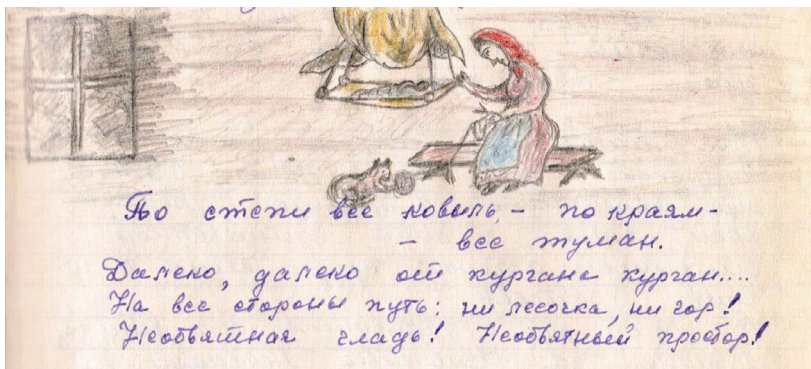 По степи все ковыль, – по краям –
– все туман.
Далеко, далеко от кургана курган....
На все стороны путь: ни лесочка, ни гор!
Необъятная гладь! Необъятный простор!